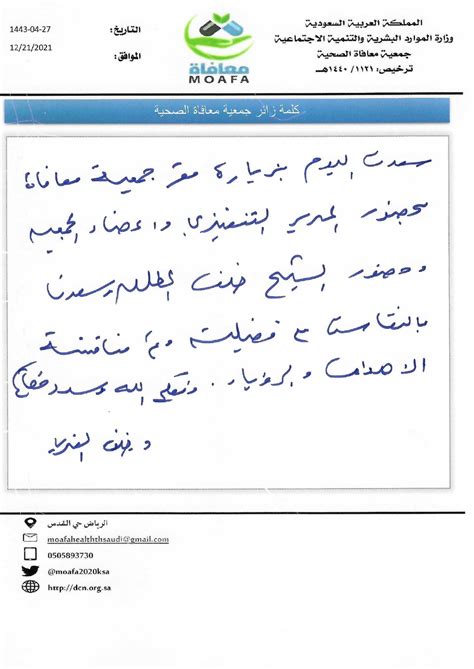 المملكة العربية السعودية
وزارة الموارد البشرية والتنمية الاجتماعية
جمعية معافاة الصحية
ترخيص: ١١٢١/١٤٤٠هـ
معافاة
MOAFA
التاريخ: 1443-04-27
الموافق: 12/21/2021
كلمة زائر جمعية معافاة الصحية
سعدت اليوم بزيارة مقر جمعية معافاة
بحضور المدير التنفيذي واعضاء الجمعيه
وحضور الشيخ خلف المطلق وسعدنا
بالنقاش مع فضيلته وتم مناقشة
الاهداف والرؤيا. وفقكم الله وسدد خطاكم
الرياض حي القدس
moafahealththsaudi@gmail.com
0505893730
@moafa2020ksa
http://dcn.org.sa